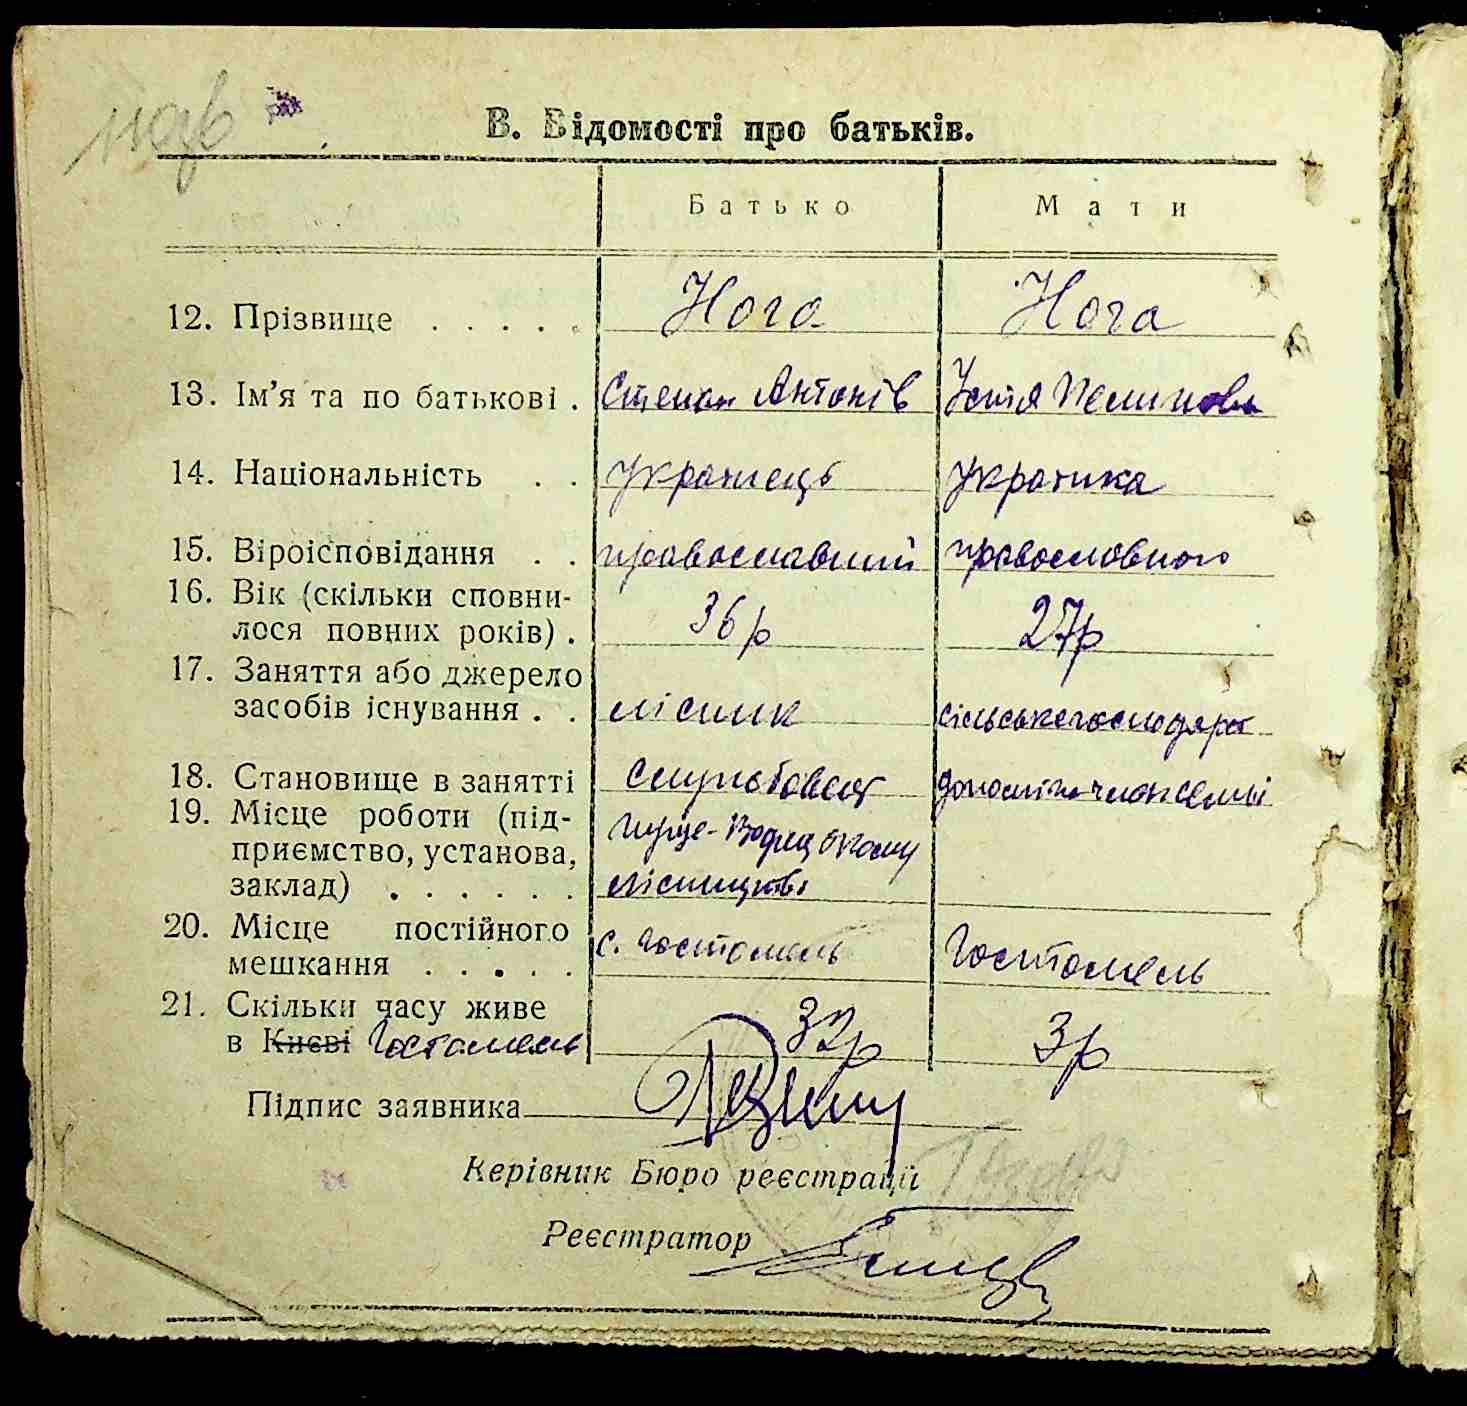 В. Відомості про батьків.
Батько Мати
12. Прізвище . . . . . Нога Нога
13. Ім'я та по батькові . Степан Антонів Устя
14. Національність . . Українець Українка
15. Віроісповідання . . православний православного
16. Вік (скільки сповни-
лося повних років) . 36 р 27р
17. Заняття або джерело
засобів існування . . лісник
18. Становище в занятті службовець
19. Місце роботи (під-
приємство, установа, Пуще-Водицькому
заклад) . . . . . . лісництві
20. Місце постійного
мешкання . . . . . с. Гостомель Гостомель
21. Скільки часу живе
в Києві Гостомель 32р 3р
Підпис заявника
Керівник Бюро реєстрації
Реєстратор